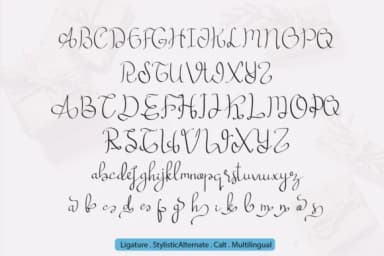 ABCDEFGHIJKLMNOPQ
RSTUVWXYZ
ABCDEFHIJKLMNOPQ
RSTUVWXYZ
abcdefghijklmnopqrstuvwxyz
Ligature . StylisticAlternate . Calt . Multilingual